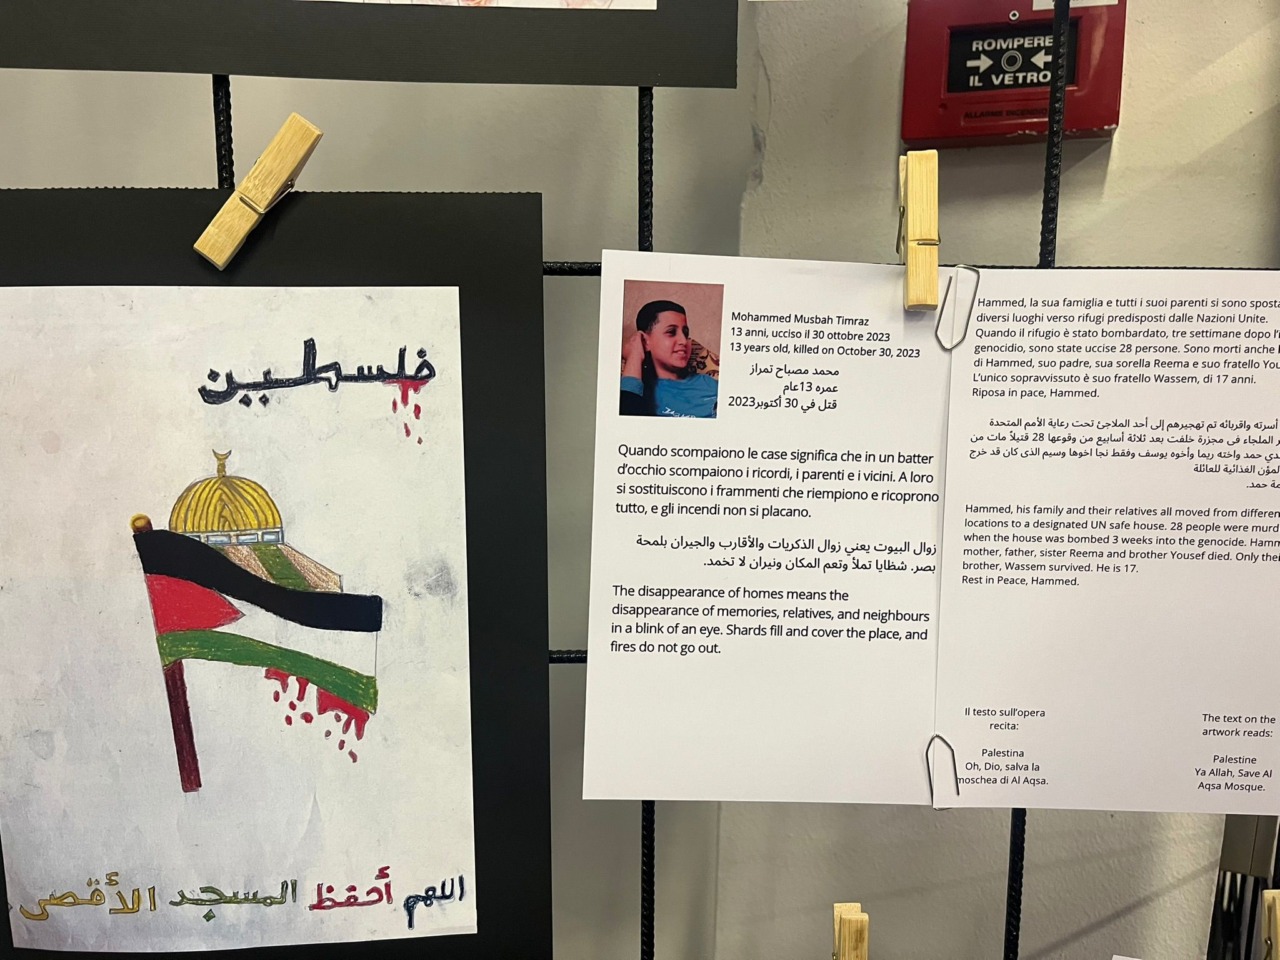 ROMPERE
IL VETRO
ALLARME INCENDIO
فلسطين
اللهم أحفظ المسجد الأقصى
Mohammed Musbah Timraz
13 anni, ucciso il 30 ottobre 2023
13 years old, killed on October 30, 2023
محمد مصباح تمراز
عمره 13عام
قتل في 30 أكتوبر2023
Quando scompaiono le case significa che in un batter
d’occhio scompaiono i ricordi, i parenti e i vicini. A loro
si sostituiscono i frammenti che riempiono e ricoprono
tutto, e gli incendi non si placano.
زوال البيوت يعني زوال الذكريات والأقارب والجيران بلمحة
بصر. شظايا تملأ وتعم المكان ونيران لا تخمد.
The disappearance of homes means the
disappearance of memories, relatives, and neighbours
in a blink of an eye. Shards fill and cover the place, and
fires do not go out.
Hammed, la sua famiglia e tutti i suoi parenti si sono
diversi luoghi verso rifugi predisposti dalle Nazioni Unite.
Quando il rifugio è stato bombardato, tre settimane dopo
genocidio, sono state uccise 28 persone. Sono morti anche
di Hammed, suo padre, sua sorella Reema e suo fratello
L’unico sopravvissuto è suo fratello Wassem, di 17 anni.
Riposa in pace, Hammed.
أسرته واقربائه تم تهجيرهم إلى أحد الملاجئ تحت رعاية الأمم المتحدة
الملجاء في مجزرة خلفت بعد ثلاثة أسابيع من وقوعها 28 قتيلاً مات من
حمد واخته ريما وأخوه يوسف وفقط نجا اخوها وسيم الذى كان قد خرج
المؤن الغذائية للعائلة
حمد.
Hammed, his family and their relatives all moved from
locations to a designated UN safe house. 28 people were
when the house was bombed 3 weeks into the genocide.
mother, father, sister Reema and brother Yousef died. Only
brother, Wassem survived. He is 17.
Rest in Peace, Hammed.
Il testo sull’opera
recita:
Palestina
Oh, Dio, salva la
moschea di Al Aqsa.
The text on the
artwork reads:
Palestine
Ya Allah, Save Al
Aqsa Mosque.